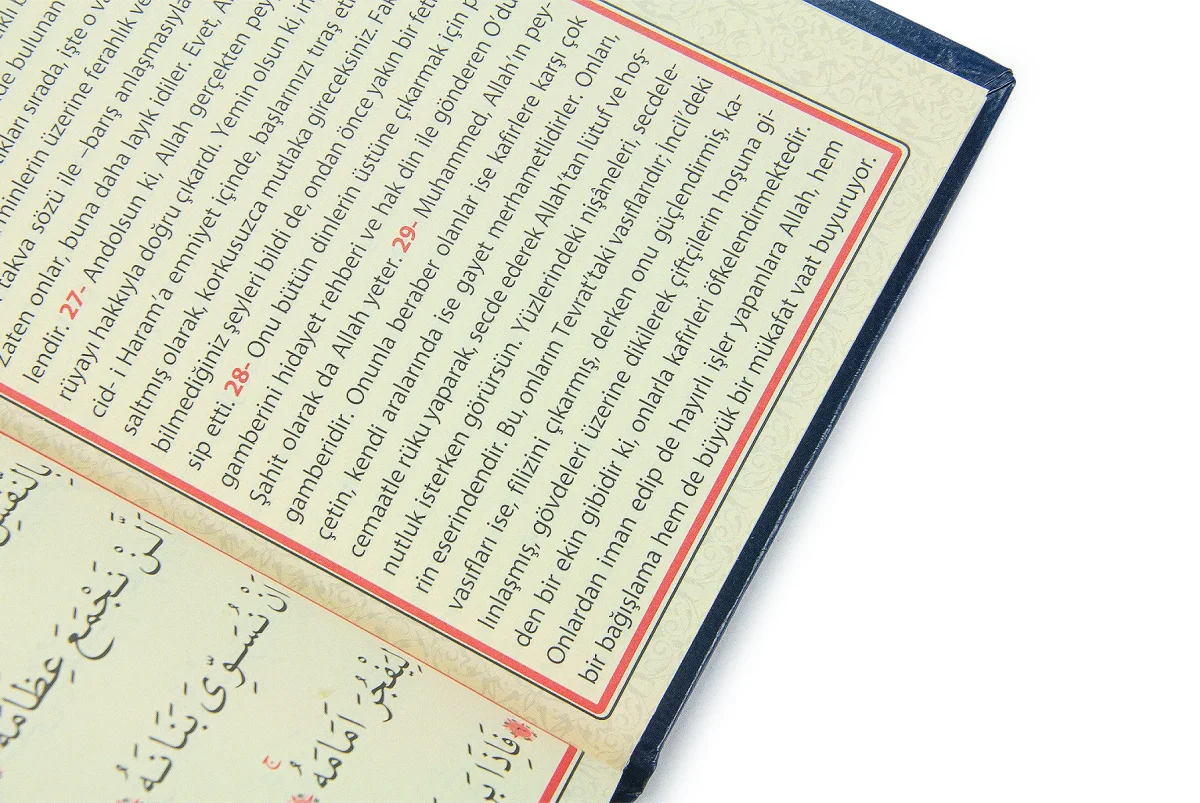 de bulunan
sırada, işte o
minlerin üzerine ferahlık ve
takva sözü ile –barış anlaşmasıyla
Zaten onlar, buna daha layık idiler. Evet,
lendir. 27- Andolsun ki, Allah gerçekten pey
rüyayı hakkıyla doğru çıkardı. Yemin olsun ki,
cid- i Haram'a emniyet içinde, başlarınızı tıraş et
saltmış olarak, korkusuzca mutlaka gireceksiniz.
bilmediğiniz şeyleri bildi de, ondan önce yakın bir fet
sip etti. 28- Onu bütün dinlerin üstüne çıkarmak için
gamberini hidayet rehberi ve hak din ile gönderen O'du
Şahit olarak da Allah yeter. 29- Muhammed, Allah'ın pey-
gamberidir. Onunla beraber olanlar ise kafirlere karşı çok
çetin, kendi aralarında ise gayet merhametlidirler. Onları,
cemaatle rüku yaparak, secde ederek Allah'tan lütuf ve hoş-
nutluk isterken görürsün. Yüzlerindeki nişâneleri, secdele-
rin eserindendir. Bu, onların Tevrat'taki vasıflarıdır, İncil'deki
vasıfları ise, filizini çıkarmış, derken onu güçlendirmiş, ka-
lınlaşmış, gövdeleri üzerine dikilerek çiftçilerin hoşuna gi-
den bir ekin gibidir ki, onlarla kafirleri öfkelendirmektedir.
Onlardan iman edip de hayırlı işler yapanlara Allah, hem
bir bağışlama hem de büyük bir mükafat vaat buyuruyor.
بِالنَّفْسِ
اَلَّنْ نَجْمَعَ عِظَامَهُ
اَنْ نُسَوِّىَ بَنَانَهُ
لِيَفْجُرَ اَمَامَهُ
فَاِذَا